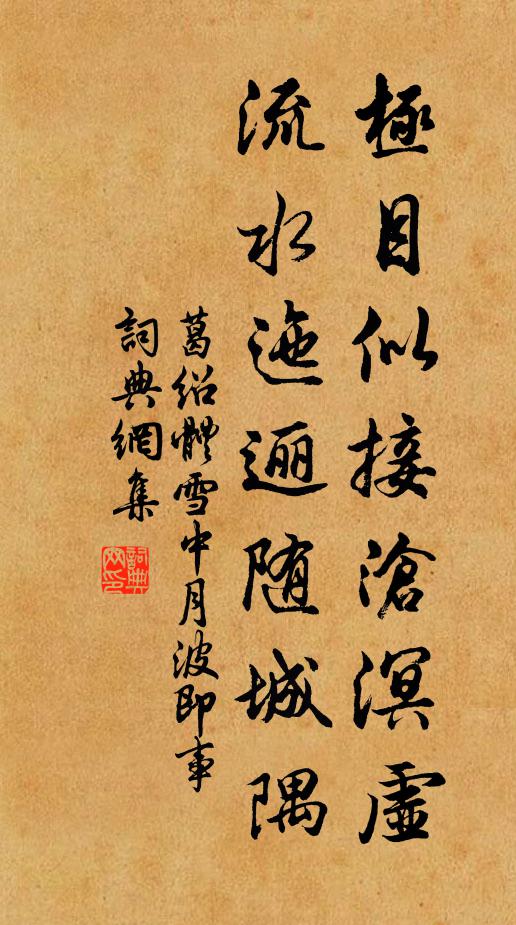 極目似接滄溟虛
流水迤逦随城隅
葛紹體雪中月波即事
詞典網集
詞典網印